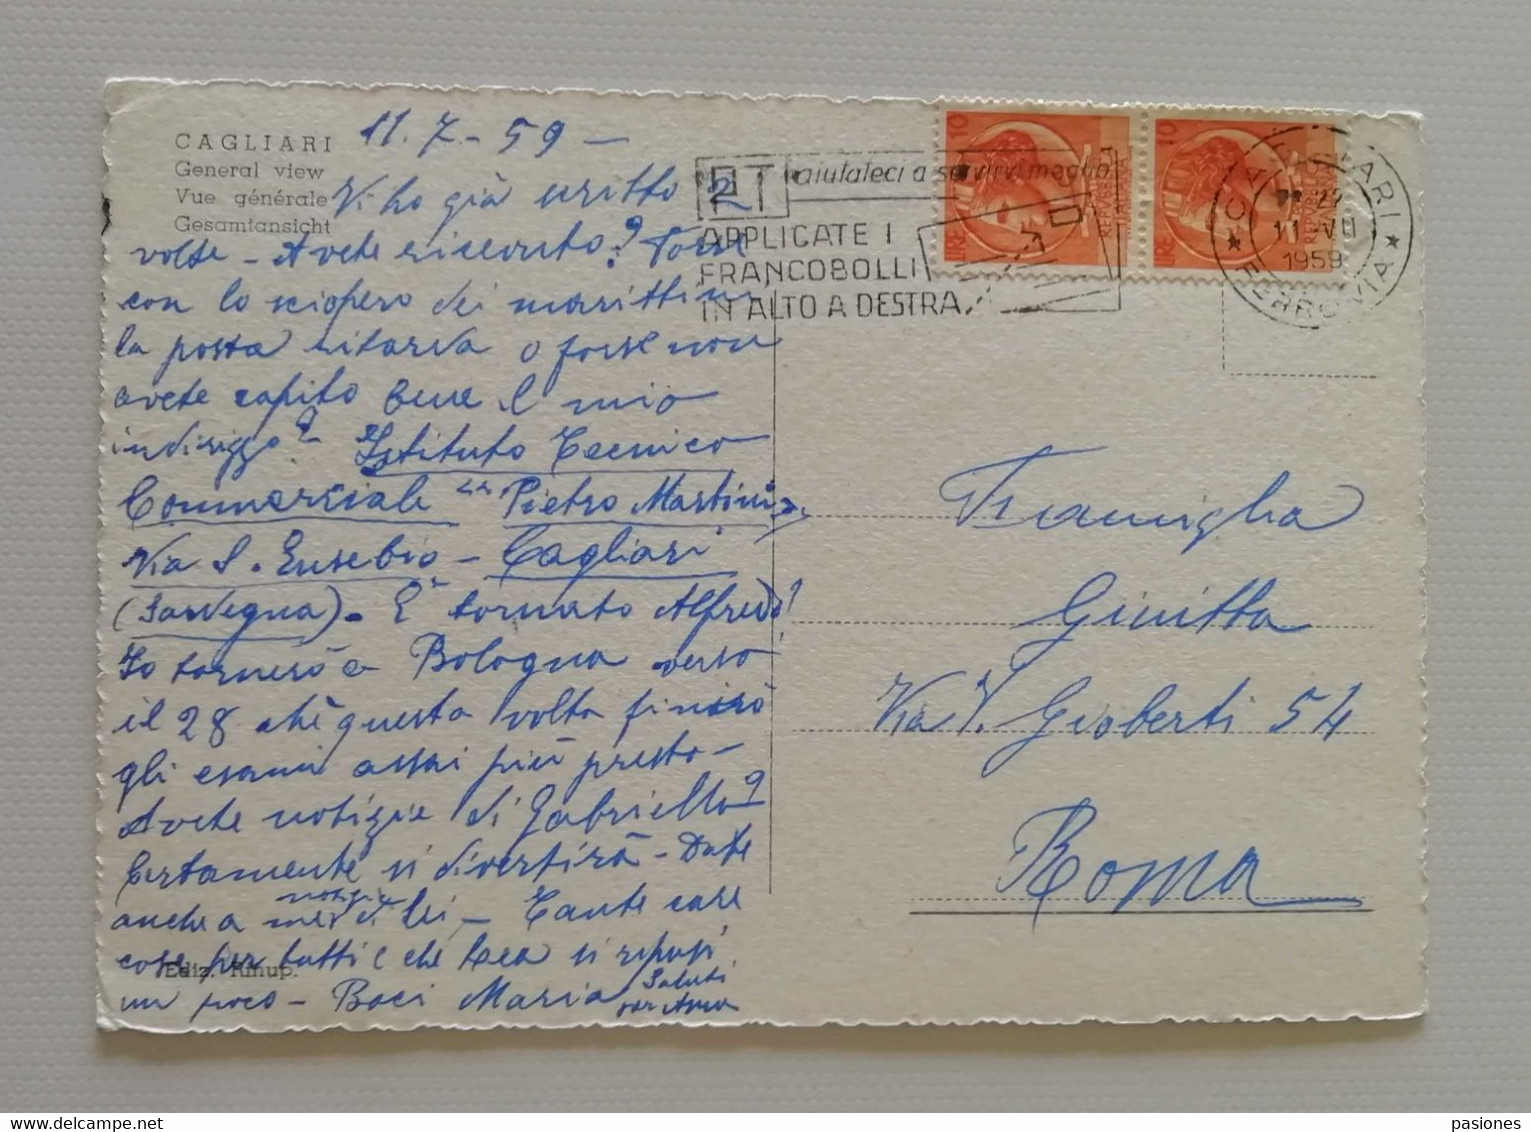 CAGLIARI
General view
Vue générale
Gesamtansicht
11.7-59-
Vi ho già scritto 2
volte - Avete ricevuto? Forse
con lo sciopero dei marittimi
la posta ritarda o forse non
avete capito bene il mio
indirizzo? Istituto Tecnico
Commerciale "Pietro Martini"
Via S. Eusebio - Cagliari
(Sardegna). È tornato Alfredo?
Io tornerò a Bologna verso
il 28 chè questa volta finirò
gli esami assai più presto -
Avete notizie di Gabriella?
Certamente si divertirà - Date
anche a me notizie di lei - Tante care
cose per tutti e che Lea si riposi
un poco - Baci Maria
Saluti
Ediz. Rinup.
PT aiutateci a servirvi meglio
APPLICATE I
FRANCOBOLLI
IN ALTO A DESTRA
10 LIRE REPVBBLICA ITALIANA
10 LIRE REPVBBLICA ITALIANA
CAGLIARI
11 VII
1959
FERROVIA
Famiglia
Giuitta
Via V. Gioberti 54
Roma
pasiones